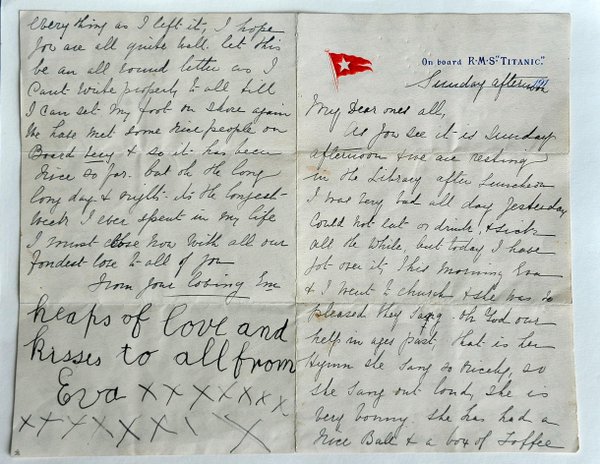 On board R·M·S "TITANIC."
191
Sunday afternoon
My Dear ones all,
As you see it is Sunday
afternoon & we are resting
in the Library after Luncheon
I was very bad all day yesterday
could not eat or drink, & sick
all the while, but today I have
got over it, This morning Eva
& I went to church & she was so
pleased they sang Oh God our
help in ages past, that is her
Hymn she sang so nicely, so
she sang out loud, she is
very bonny. she has had a
nice Ball & a box of Toffee
everything as I left it, I hope
you are all quite well. let this
be an all round letter as I
Cant write properly to all till
I can set my foot on shore again
We have met some nice people on
Board Lucy & so it has been
nice so far. but oh the long
long day & night its the longest
week I ever spent in my life
I must close now with all our
fondest love to all of you
From your loving
heaps of love and
kisses to all from
Eva xxxxxxxx
xxxxxxxx x